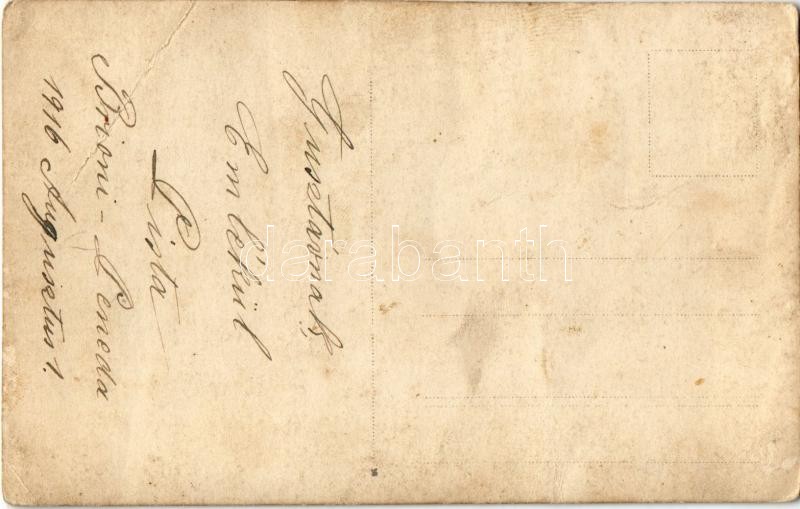 Gusztávnak
Emlékül
Pista
Brioni - Peneda
1916 Augusztus 1.
darabanth